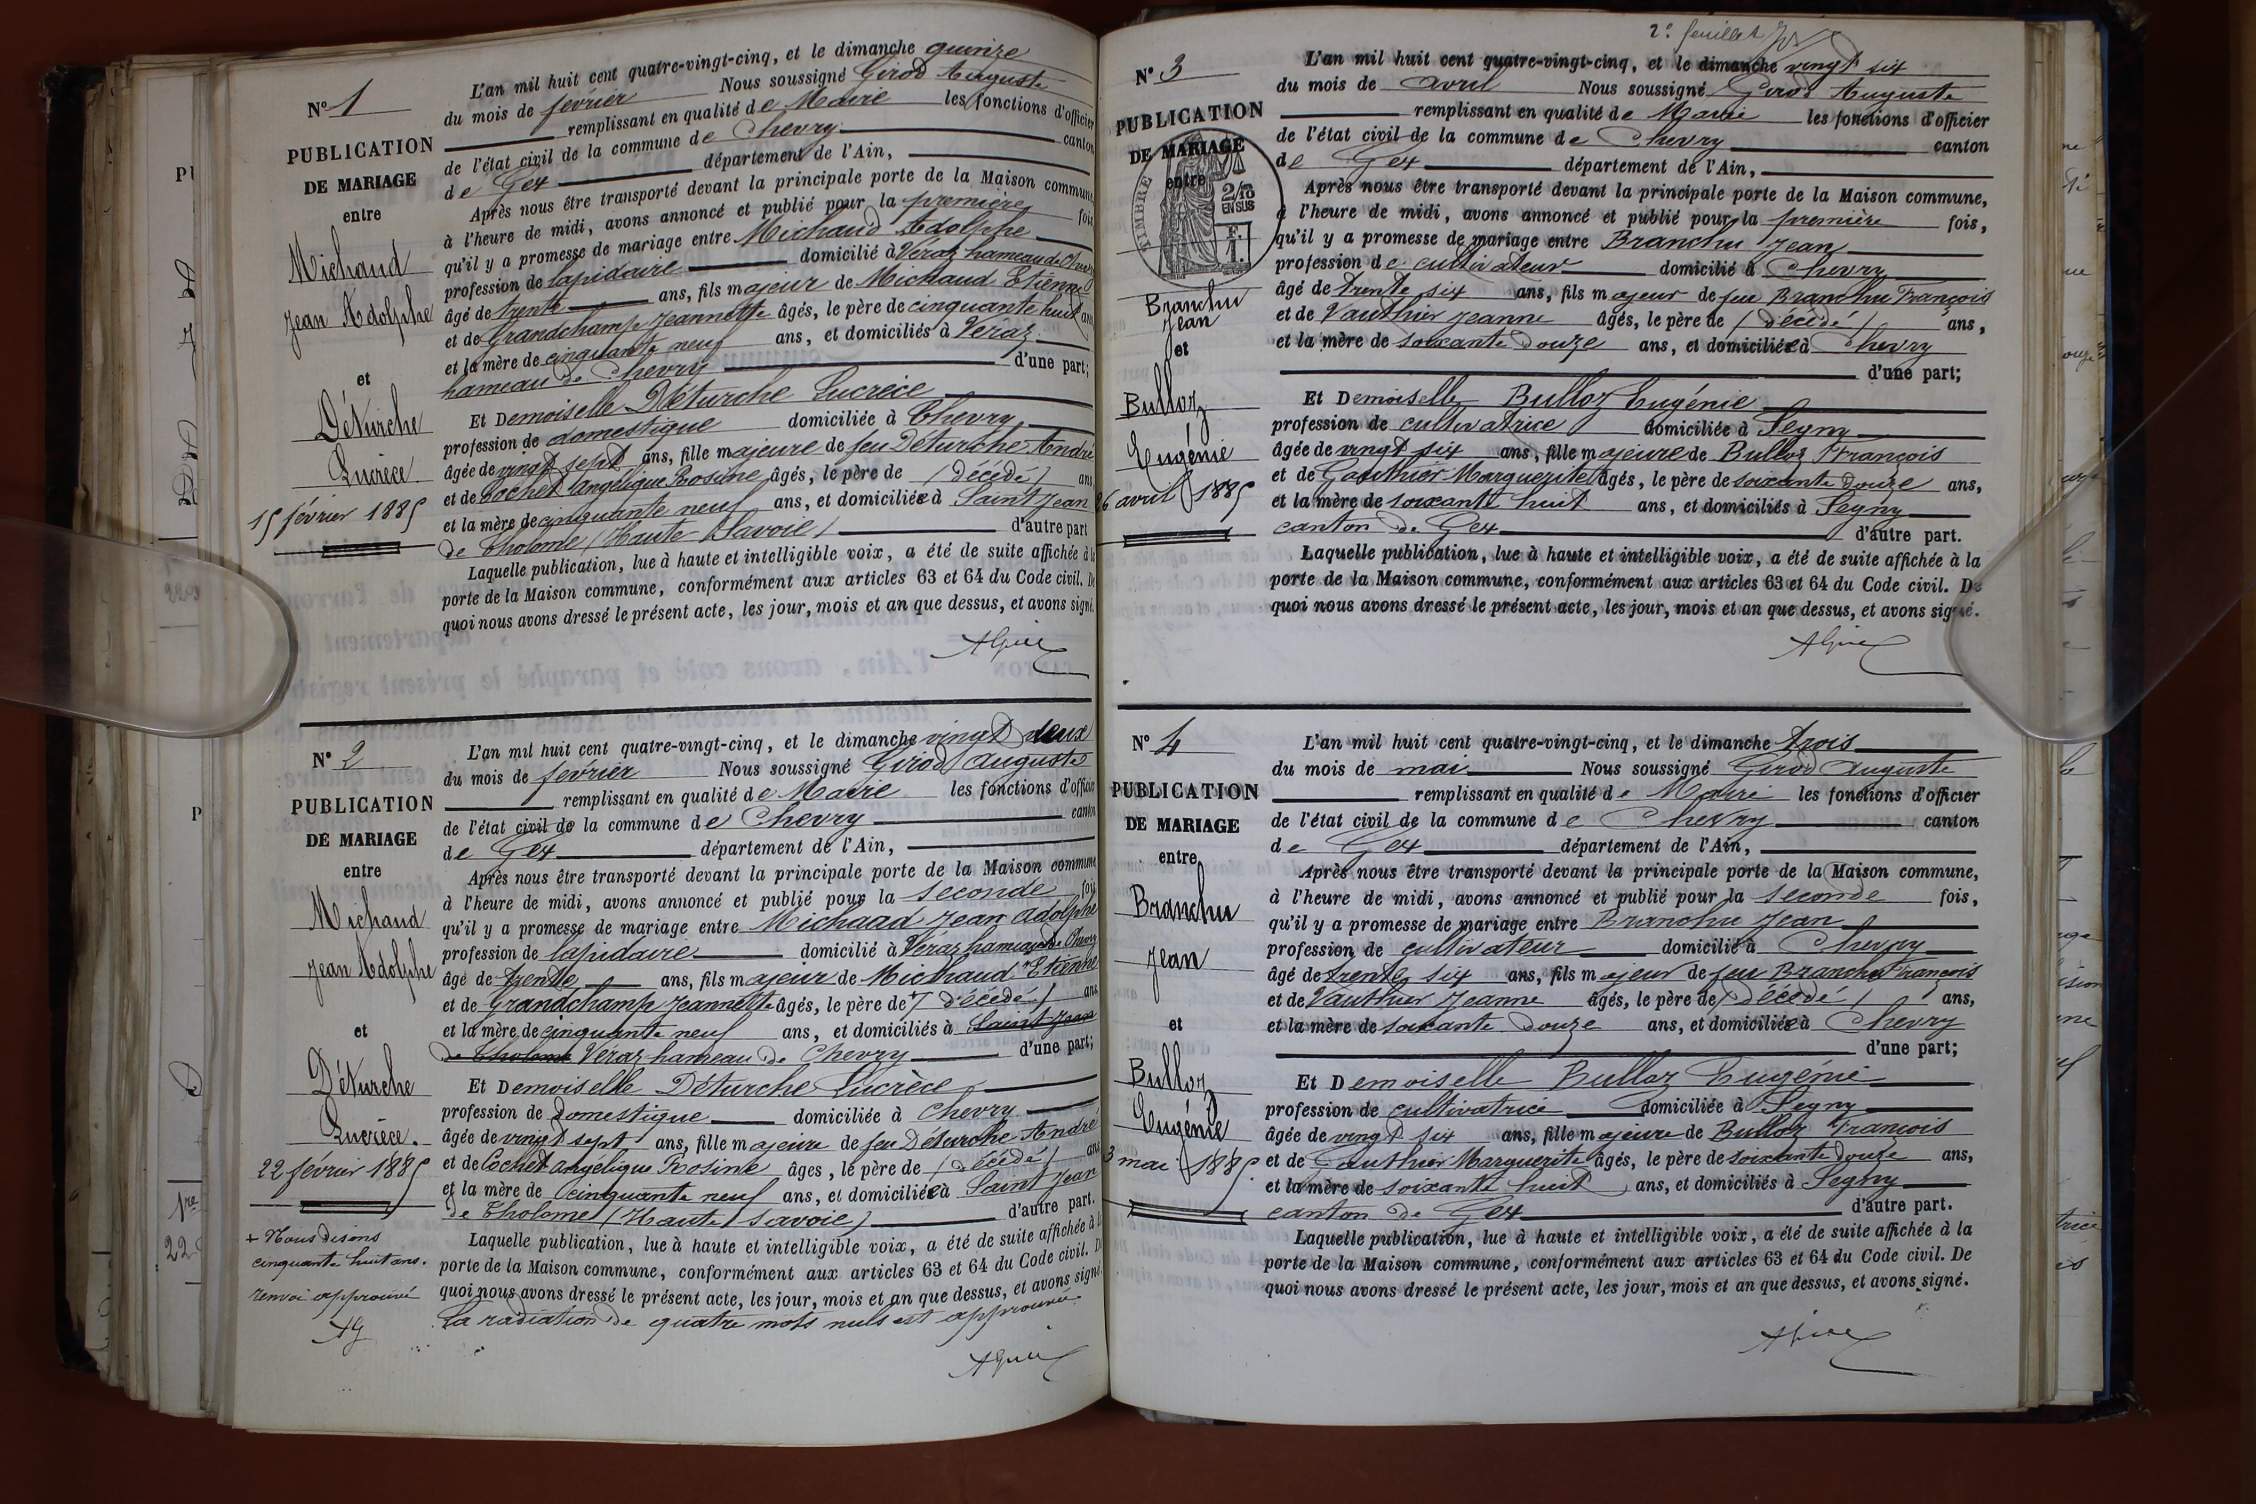 N° 1
PUBLICATION
DE MARIAGE
entre
Michaud
Jean Adolphe
et
Déturche
Lucrèce.
15 février 1885
L'an mil huit cent quatre-vingt-cinq, et le dimanche quinze
du mois de février Nous soussigné Girod Auguste
remplissant en qualité de Maire les fonctions d'officier
de l'état civil de la commune de Chevry canton
de Gex département de l'Ain,
Après nous être transporté devant la principale porte de la Maison commune,
à l'heure de midi, avons annoncé et publié pour la première fois
qu'il y a promesse de mariage entre Michaud Adolphe
profession de lapidaire domicilié à Véraz hameau de Chevry
âgé de trente ans, fils majeur de Michaud Etienne
et de Grandchamp Jeannette âgés, le père de cinquante huit ans
et la mère de cinquante neuf ans, et domiciliés à Véraz
hameau de Chevry d'une part;
Et Demoiselle Déturche Lucrèce
profession de domestique domiciliée à Chevry
âgée de vingt sept ans, fille majeure de feu Déturche André
et de Cochet Angélique Rosine âgés, le père de (décédé) ans
et la mère de cinquante neuf ans, et domiciliée à Saint Jean
de Tholome (Haute Savoie) d'autre part
Laquelle publication, lue à haute et intelligible voix, a été de suite affichée à la
porte de la Maison commune, conformément aux articles 63 et 64 du Code civil. De
quoi nous avons dressé le présent acte, les jour, mois et an que dessus, et avons signé.
N° 2
PUBLICATION
DE MARIAGE
entre
Michaud
Jean Adolphe
et
Déturche
Lucrèce.
22 février 1885
+ Nous disons
cinquante huit ans.
renvoi approuvé
AG
L'an mil huit cent quatre-vingt-cinq, et le dimanche vingt deux
du mois de février Nous soussigné Girod Auguste
remplissant en qualité de Maire les fonctions d'officier
de l'état civil de la commune de Chevry canton
de Gex département de l'Ain,
Après nous être transporté devant la principale porte de la Maison commune
à l'heure de midi, avons annoncé et publié pour la seconde fois
qu'il y a promesse de mariage entre Michaud Jean Adolphe
profession de lapidaire domicilié à Véraz hameau de Chevry
âgé de trente ans, fils majeur de Michaud Etienne
et de Grandchamp Jeannette âgés, le père de + décédé) ans
et la mère de cinquante neuf ans, et domiciliés à Saint Jean
de Tholome Véraz hameau de Chevry d'une part;
Et Demoiselle Déturche Lucrèce
profession de domestique domiciliée à Chevry
âgée de vingt sept ans, fille majeure de feu Déturche André
et de Cochet Angélique Rosine âgés, le père de (décédé) ans
et la mère de cinquante neuf ans, et domiciliée à Saint Jean
de Tholome (Haute Savoie) d'autre part.
Laquelle publication, lue à haute et intelligible voix, a été de suite affichée à la
porte de la Maison commune, conformément aux articles 63 et 64 du Code civil. De
quoi nous avons dressé le présent acte, les jour, mois et an que dessus, et avons signé.
La radiation de quatre mots nuls est approuvée.
2e feuillet
N° 3
PUBLICATION
DE MARIAGE
entre
TIMBRE
2/10
EN SUS
F.
1.
Branchu
Jean
et
Bulloz
Eugénie
26 avril 1885
L'an mil huit cent quatre-vingt-cinq, et le dimanche vingt six
du mois de avril Nous soussigné Girod Auguste
remplissant en qualité de Maire les fonctions d'officier
de l'état civil de la commune de Chevry canton
de Gex département de l'Ain,
Après nous être transporté devant la principale porte de la Maison commune,
à l'heure de midi, avons annoncé et publié pour la première fois,
qu'il y a promesse de mariage entre Branchu Jean
profession de cultivateur domicilié à Chevry
âgé de trente six ans, fils majeur de feu Branchu François
et de Vauthier Jeanne âgés, le père de (décédé) ans,
et la mère de soixante douze ans, et domiciliée à Chevry
d'une part;
Et Demoiselle Bulloz Eugénie
profession de cultivatrice domiciliée à Segny
âgée de vingt six ans, fille majeure de Bulloz François
et de Gauthier Marguerite âgés, le père de soixante douze ans,
et la mère de soixante huit ans, et domiciliés à Segny
canton de Gex d'autre part.
Laquelle publication, lue à haute et intelligible voix, a été de suite affichée à la
porte de la Maison commune, conformément aux articles 63 et 64 du Code civil. De
quoi nous avons dressé le présent acte, les jour, mois et an que dessus, et avons signé.
N° 4
PUBLICATION
DE MARIAGE
entre
Branchu
Jean
et
Bulloz
Eugénie
3 mai 1885.
L'an mil huit cent quatre-vingt-cinq, et le dimanche trois
du mois de mai Nous soussigné Girod Auguste
remplissant en qualité de Maire les fonctions d'officier
de l'état civil de la commune de Chevry canton
de Gex département de l'Ain,
Après nous être transporté devant la principale porte de la Maison commune,
à l'heure de midi, avons annoncé et publié pour la seconde fois,
qu'il y a promesse de mariage entre Branchu Jean
profession de cultivateur domicilié à Chevry
âgé de trente six ans, fils majeur de feu Branchu François
et de Vauthier Jeanne âgés, le père de (décédé) ans,
et la mère de soixante douze ans, et domiciliée à Chevry
d'une part;
Et Demoiselle Bulloz Eugénie
profession de cultivatrice domiciliée à Segny
âgée de vingt six ans, fille majeure de Bulloz François
et de Gauthier Marguerite âgés, le père de soixante douze ans,
et la mère de soixante huit ans, et domiciliés à Segny
canton de Gex d'autre part.
Laquelle publication, lue à haute et intelligible voix, a été de suite affichée à la
porte de la Maison commune, conformément aux articles 63 et 64 du Code civil. De
quoi nous avons dressé le présent acte, les jour, mois et an que dessus, et avons signé.